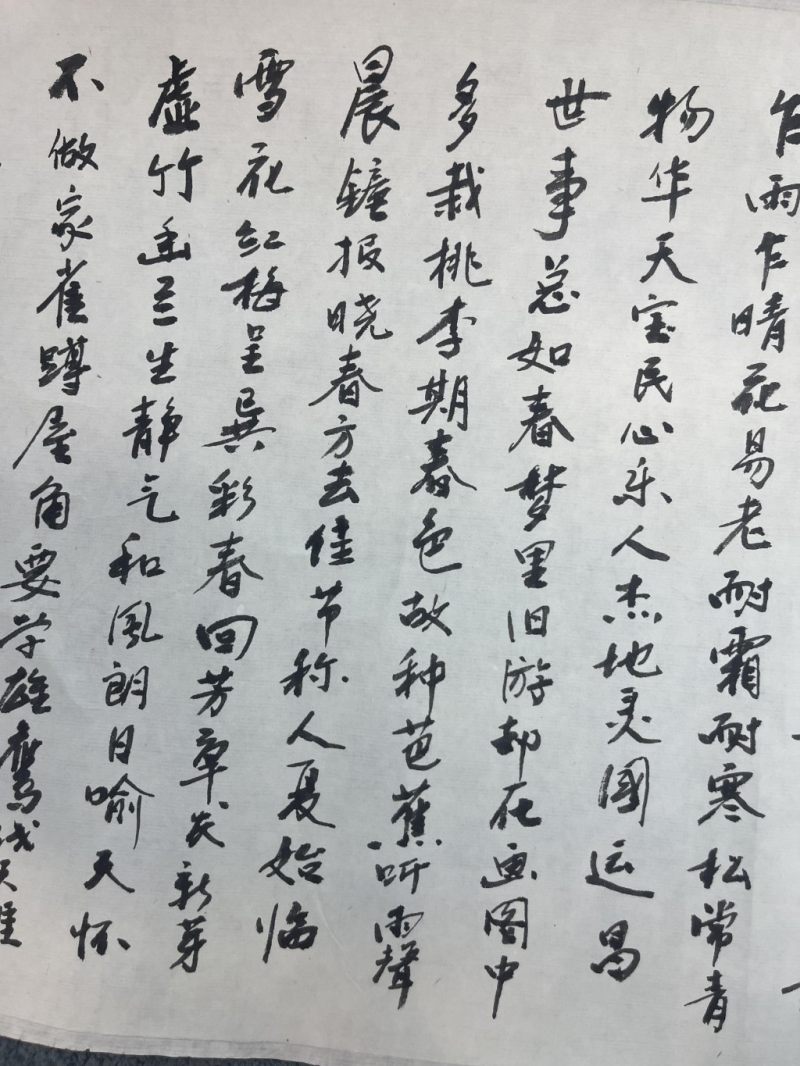 乍雨乍晴花易老耐霜耐寒松常青
物华天宝民心乐人杰地灵国运昌
世事总如春梦里旧游却在画图中
多栽桃李期春色故种芭蕉听雨声
晨钟报晓春方去佳节称人夏始临
雪花红梅呈异彩春回芳草长新芽
虚竹幽兰生静气和风朗日喻天怀
不做家雀蹲屋角要学雄鹰